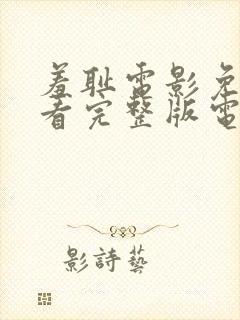 羞耻電影免
看完整版電
影詩藝